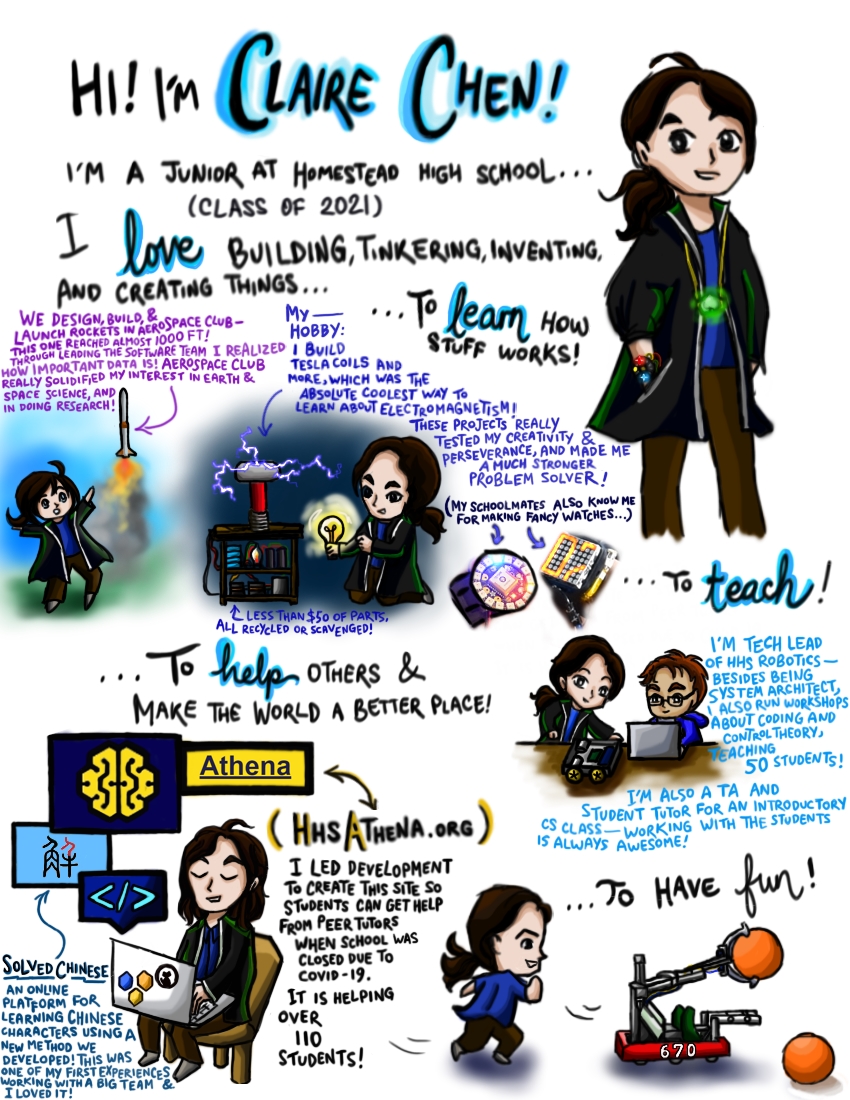 HI! I'M CLAIRE CHEN!
I'M A JUNIOR AT HOMESTEAD HIGH SCHOOL...
(CLASS OF 2021)
I love BUILDING, TINKERING, INVENTING,
AND CREATING THINGS...
WE DESIGN, BUILD, &
LAUNCH ROCKETS IN AEROSPACE CLUB—
THIS ONE REACHED ALMOST 1000 FT!
THROUGH LEADING THE SOFTWARE TEAM I REALIZED
HOW IMPORTANT DATA IS! AEROSPACE CLUB
REALLY SOLIDIFIED MY INTEREST IN EARTH &
SPACE SCIENCE, AND
IN DOING RESEARCH!
MY —
HOBBY:
I BUILD
TESLA COILS AND
MORE, WHICH WAS THE
ABSOLUTE COOLEST WAY TO
LEARN ABOUT ELECTROMAGNETISM!
...TO learn HOW
STUFF WORKS!
THESE PROJECTS REALLY
TESTED MY CREATIVITY &
PERSEVERANCE, AND MADE ME
A MUCH STRONGER
PROBLEM SOLVER!
(MY SCHOOLMATES ALSO KNOW ME
FOR MAKING FANCY WATCHES...)
LESS THAN $50 OF PARTS,
ALL RECYCLED OR SCAVENGED!
...TO teach!
I'M TECH LEAD
OF HHS ROBOTICS—
BESIDES BEING
SYSTEM ARCHITECT,
I ALSO RUN WORKSHOPS
ABOUT CODING AND
CONTROL THEORY,
TEACHING
50 STUDENTS!
I'M ALSO A TA AND
STUDENT TUTOR FOR AN INTRODUCTORY
CS CLASS—WORKING WITH THE STUDENTS
IS ALWAYS AWESOME!
...TO help OTHERS &
MAKE THE WORLD A BETTER PLACE!
Athena
(HHSATHENA.ORG)
I LED DEVELOPMENT
TO CREATE THIS SITE SO
STUDENTS CAN GET HELP
FROM PEER TUTORS
WHEN SCHOOL WAS
CLOSED DUE TO
COVID-19.
IT IS HELPING
OVER
110
STUDENTS!
解
</>
SOLVED CHINESE
AN ONLINE
PLATFORM FOR
LEARNING CHINESE
CHARACTERS USING A
NEW METHOD WE
DEVELOPED! THIS WAS
ONE OF MY FIRST EXPERIENCES
WORKING WITH A BIG TEAM &
I LOVED IT!
...TO HAVE fun!
670